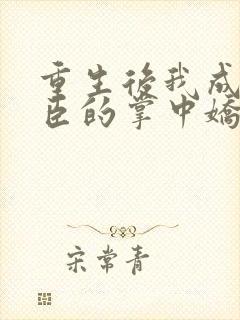 重生後我成
臣的掌中嬌
宋常青